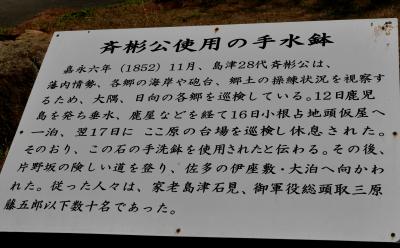 斉彬公使用の手水鉢
嘉永六年(1852)11月、島津28代斉彬公は、
藩内情勢、各郷の海岸や砲台、郷土の操練状況を視察す
るため、大隅、日向の各郷を巡検している。12日鹿児
島を発ち垂水、鹿屋などを経て16日小根占地頭仮屋へ
一泊、翌17日に ここ原の台場を巡検し休息された。
そのおり、この石の手洗鉢を使用されたと伝わる。その後、
片野坂の険しい道を登り、佐多の伊座敷・大泊へ向かわ
れた。従った人々は、家老島津石見、御軍役総頭取三原
藤五郎以下数十名であった。